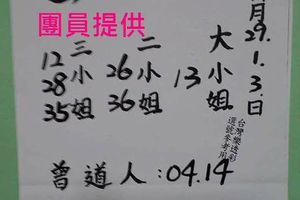 團員提供
月29.1.3.日
大小姐
13
二小姐
26
36
三小姐
12
28
35
台灣樂透彩
選號參考用
曾道人:04.14